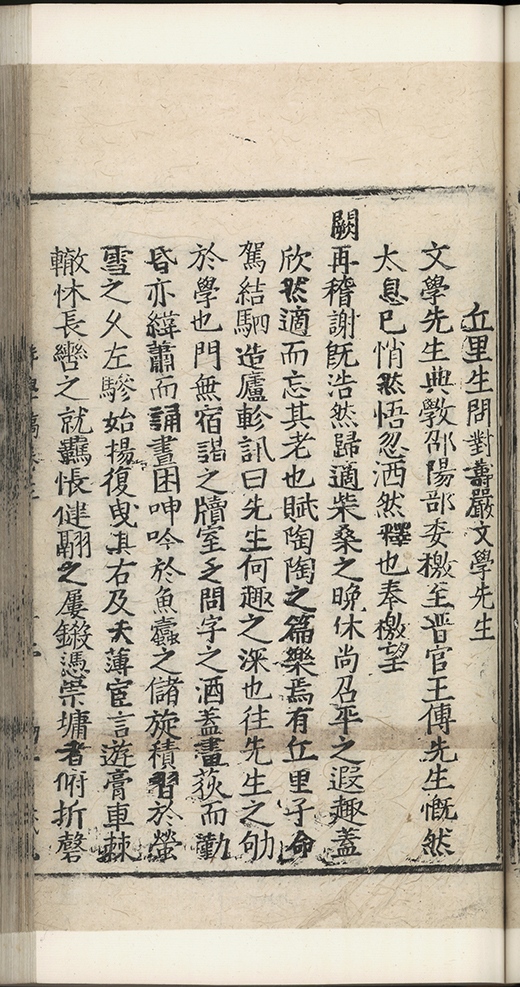 丘里生問對壽嚴文學先生
文學先生典敎邵陽部委檄至晋官王傅先生慨然
太息已悄然悟忽洒然釋也奉檄望
闕再稽謝旣浩然歸適柴桑之晩休尚召平之遐趣蓋
欣然適而忘其老也賦陶陶之篇樂焉有丘里子命
駕結駟造廬軫訊曰先生何趣之深也往先生之劬
於學也門無宿謁之牘室乏問字之酒蓋畫荻而勤
昏亦緝蕭而誦晝困呻吟於魚蠹之儲旋積習於螢
雪之乆左驂始揚復曳其右及夫薄宦言遊膏車棘
轍怵長轡之就羈悵倢翮之屢鎩憑崇墉者俯折磬